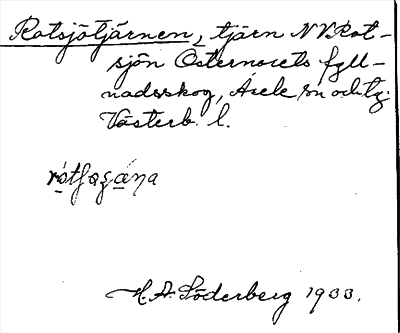 Rotsjötjärnen, tjärn NV. Rot-
sjön Östernorets fyll-
nadsskog, Åsele sn och tg.
Västerb. l.
H. A. Söderberg 1933.